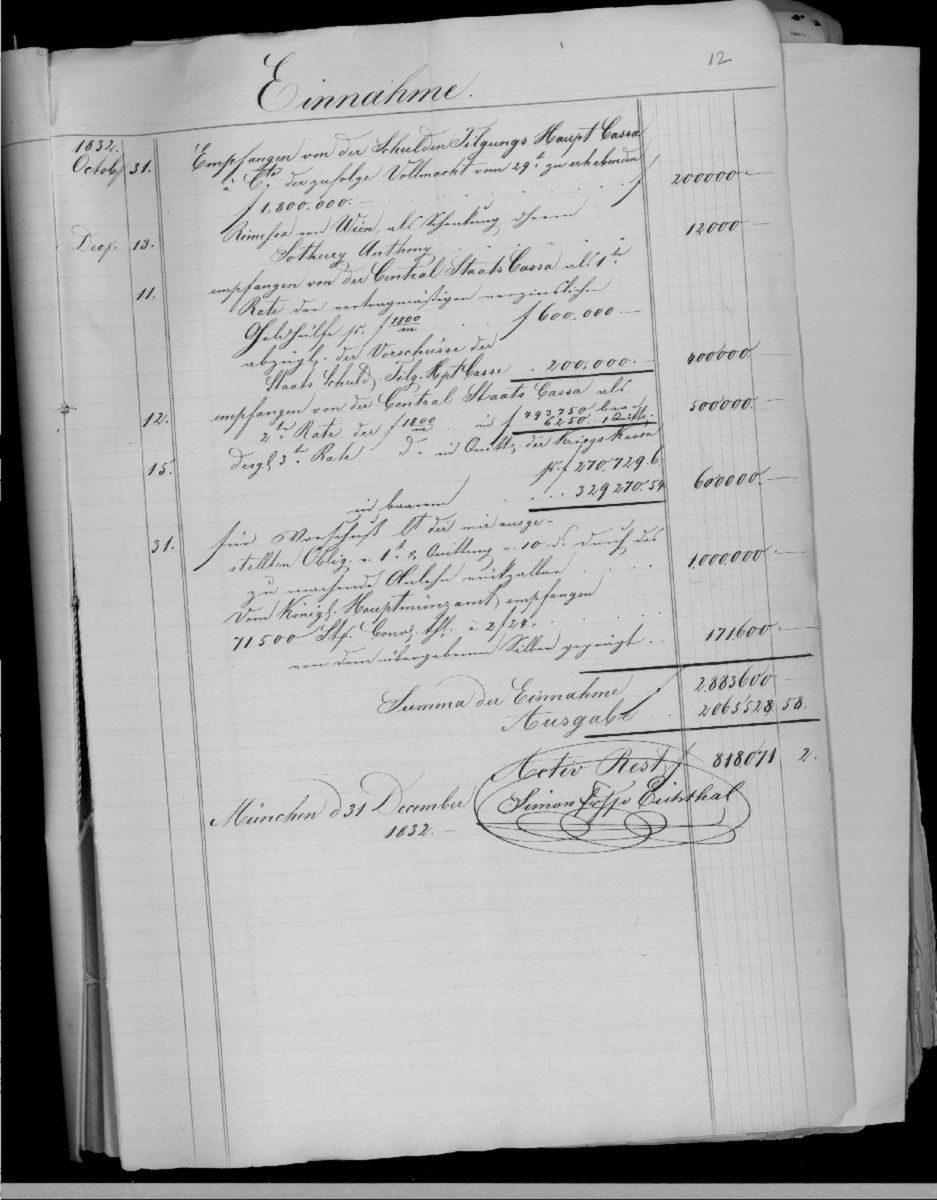 12
Einnahme.
1832.
Octob. 31. Empfangen von der Schulden Tilgungs Haupt Cassa
à Cto der zufolge Vollmacht vom 29t zu erhebenden
f 1.800.000.— . . . . . f 200000 —
Decb. 13. Rimessa von Wien, als Schenkung Herrn
Anthony . . . . 12000 —
11. empfangen von der Central Staats Cassa als 1te
Rate der vertragmäßigen verzinslichen
Geldhülfe pr. f 1800/m . . f 600.000.—
abzügl. der Vorschüsse der
Staats Schuld. Tilg. Hpt Casse . 200.000.— 400000.—
12. empfangen von der Central Staats Cassa als
2te Rate der f 1800/m in f 493.750 baar
6250.. 1 Quittg. 500000.—
15. desgl. 3te Rate do in Quittg. der Kriegs Kassa
pr. f 270.729.6.
in baarem . . . . 329270.54. 600000.—
31. für Vorschuß lt der mir ausge-
stellten Oblig. v. 1t & Quittung v. 10 ds. durch das
zu machende Anlehn rückzalbar . . . . 1,000.000 —
Vom Königl. Hauptmünzamt empfangen
71500 Stk. Conv. thl. à 2f24. . .
von dem übergebenen Silber geprägt . . 171600.—
Summa der Einnahme f 2.883600 —
Ausgabe . . 2065528 58.
Activ Rest f 818071 2.
München d 31 December
1832.—
Simon Eichthal